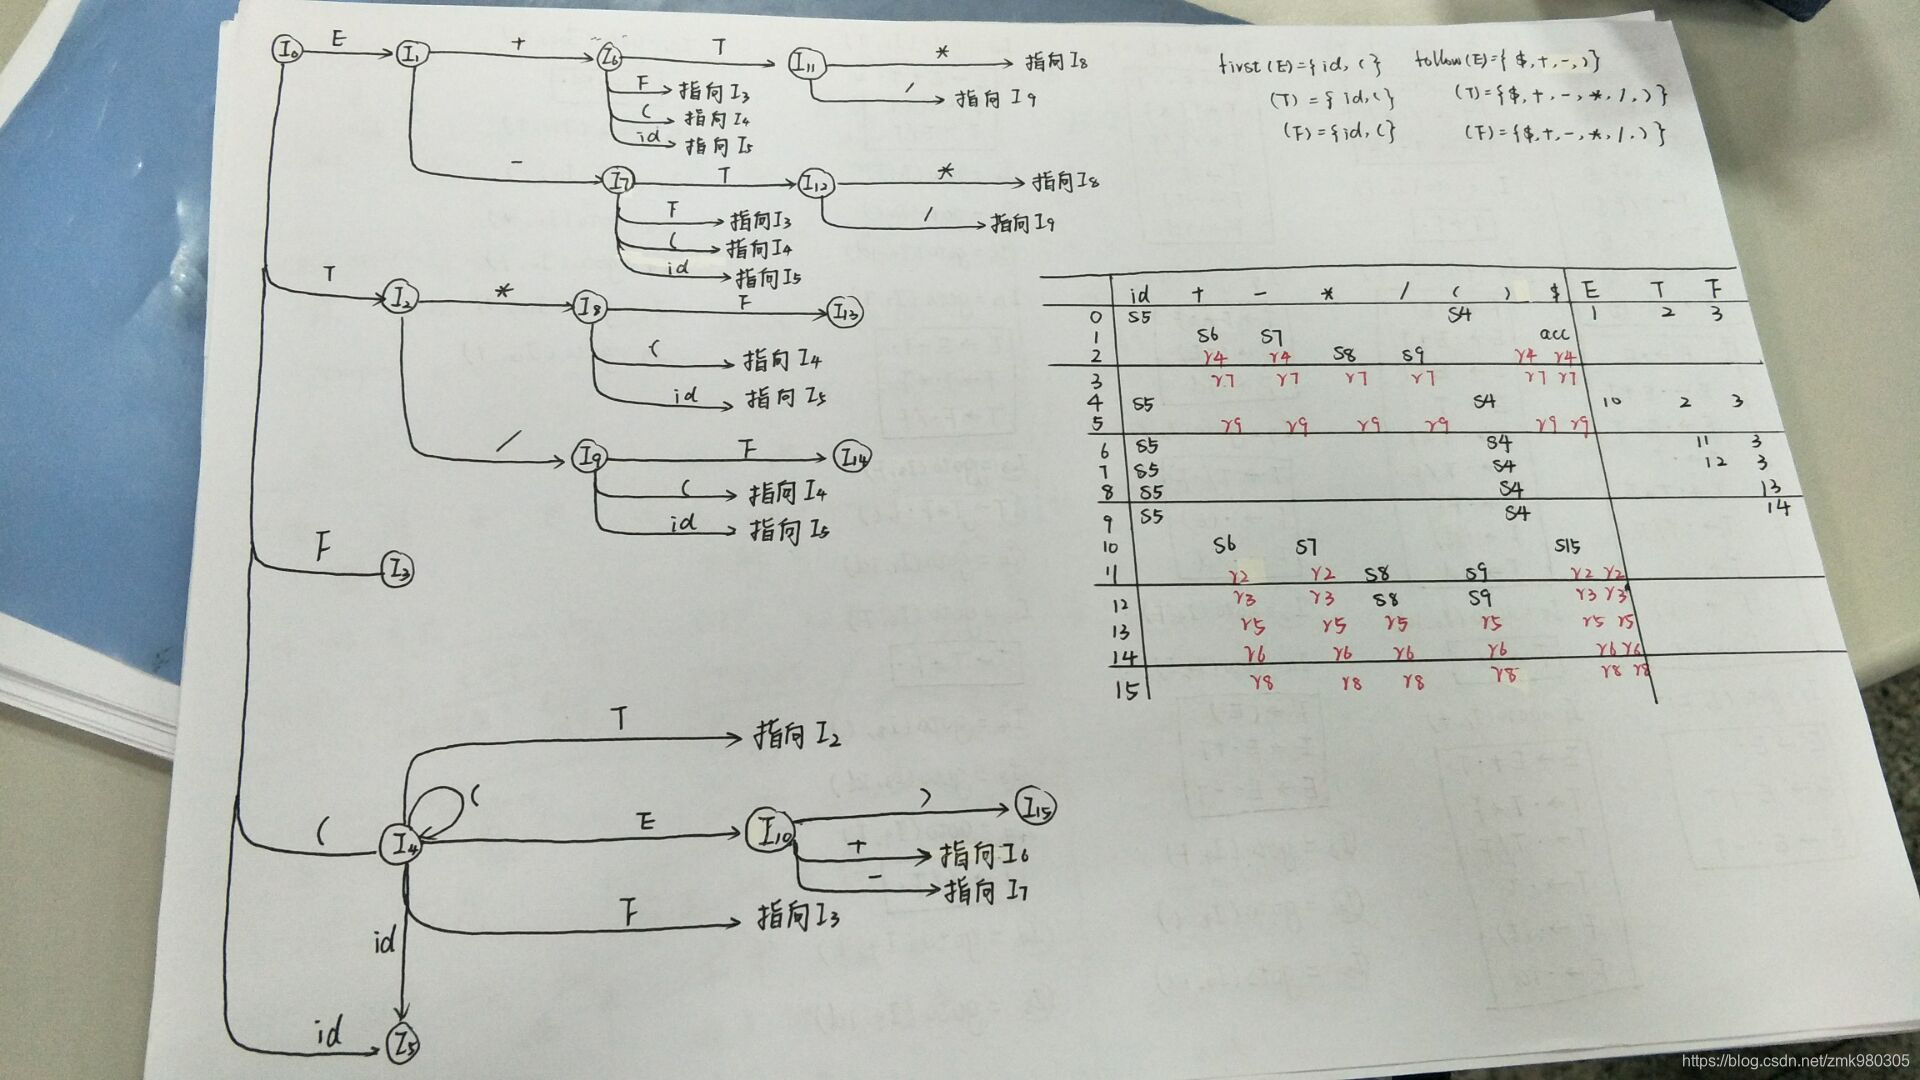 I0 E I1 + I6 T I11 * 指向I8
/ 指向I9
F 指向I3
( 指向I4
id 指向I5
- I7 T I12 * 指向I8
/ 指向I9
F 指向I3
( 指向I4
id 指向I5
T I2 * I8 F I13
( 指向I4
id 指向I5
/ I9 F I14
( 指向I4
id 指向I5
F I3
T 指向I2
(
( I4 E I10 ) I15
+ 指向I6
- 指向I7
F 指向I3
id
id I5
first(E)={id,(} follow(E)={$,+,-,)}
(T)={id,(} (T)={$,+,-,*,/,)}
(F)={id,(} (F)={$,+,-,*,/,)}
id + - * / ( ) $ E T F
0 S5 S4 1 2 3
1 S6 S7 acc
2 r4 r4 S8 S9 r4 r4
3 r7 r7 r7 r7 r7 r7
4 S5 S4 10 2 3
5 r9 r9 r9 r9 r9 r9
6 S5 S4 11 3
7 S5 S4 12 3
8 S5 S4 13
9 S5 S4 14
10 S6 S7 S15
11 r2 r2 S8 S9 r2 r2
12 r3 r3 S8 S9 r3 r3
13 r5 r5 r5 r5 r5 r5
14 r6 r6 r6 r6 r6 r6
15 r8 r8 r8 r8 r8 r8
https://blog.csdn.net/zmk980305